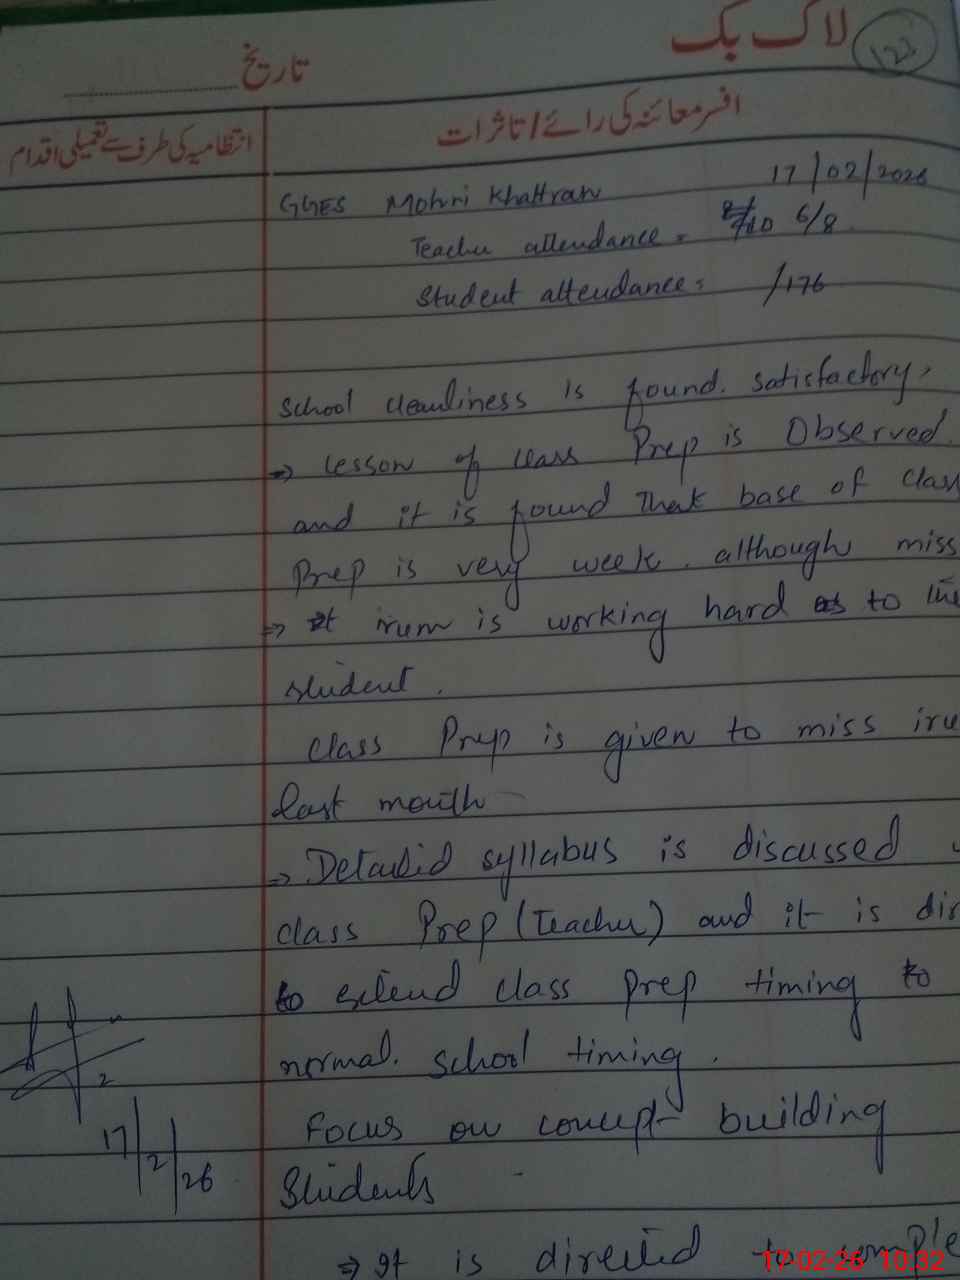 لاک بک
123
تاریخ
افسر معائنہ کی رائے/تاثرات
انتظامیہ کی طرف سے تعمیلی اقدام
GGES Mohri Khattran 17/02/2026
Teacher attendance = 6/8
Student attendance = /176
School cleanliness is found. satisfactory,
⇒ lesson of class Prep is Observed.
and it is found that base of class
Prep is very week. although miss
⇒ irum is working hard to the
student.
Class Prep is given to miss iru
last month
⇒ Detailid syllabus is discussed
class Prep (Teacher) and it is dir
to extend class prep timing to
normal. school timing.
Focus on concept building
Students
17/2/26
⇒ It is directed to comple
17-02-26 10:32